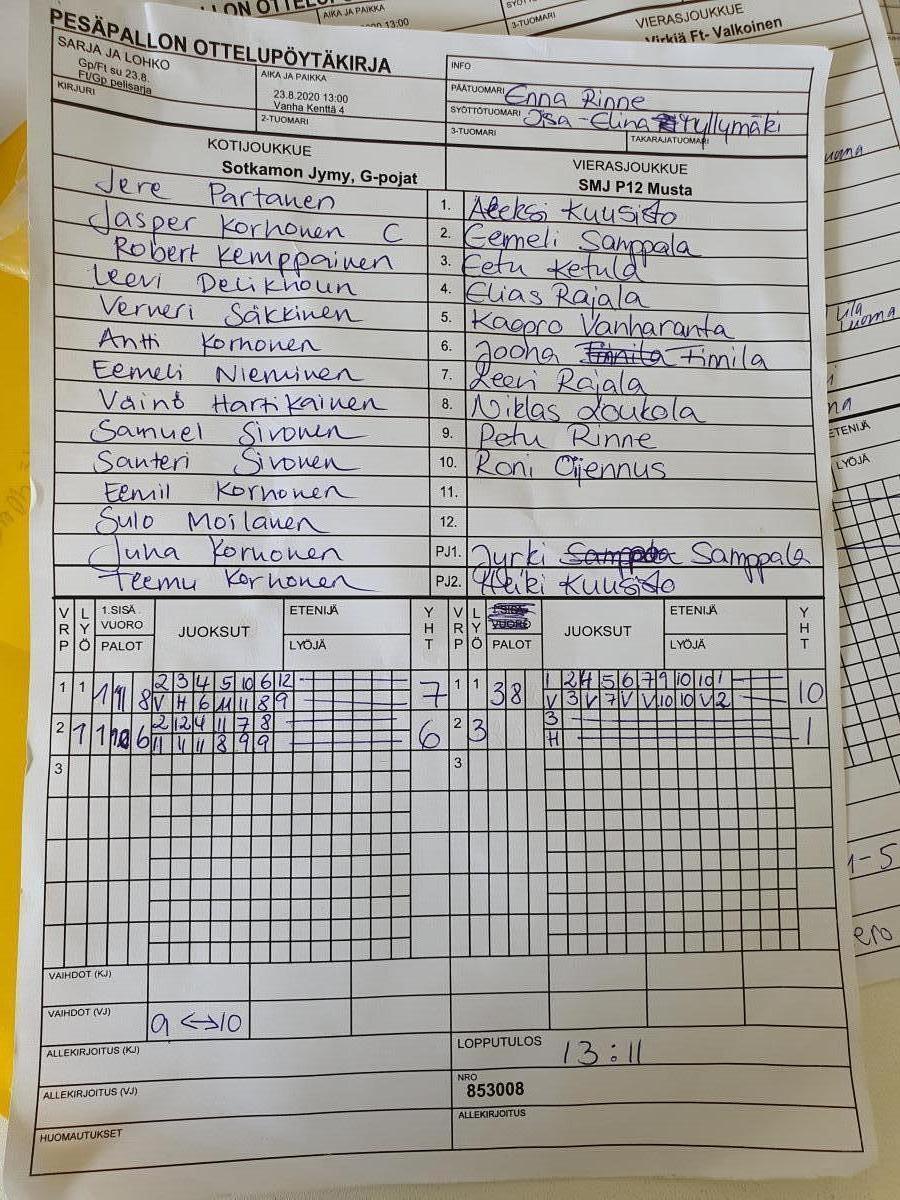 PESÄPALLON OTTELUPÖYTÄKIRJA
SARJA JA LOHKO
Gp/Ft su 23.8.
Ft/Gp pelisarja
KIRJURI
AIKA JA PAIKKA
23.8.2020 13:00
Vanha Kenttä 4
2-TUOMARI
INFO
PÄÄTUOMARI Enna Rinne
SYÖTTÖTUOMARI Iisa-Elina Kyllymäki
3-TUOMARI
TAKARAJATUOMARI
KOTIJOUKKUE
Sotkamon Jymy, G-pojat
VIERASJOUKKUE
SMJ P12 Musta
Jere Partanen 1. Aleksi Kuusisto
Jasper Korhonen C 2. Eemeli Samppala
Robert Kemppainen 3. Eetu Ketula
Leevi Delikhoun 4. Elias Rajala
Verneri Säkkinen 5. Kaapro Vanharanta
Antti Korhonen 6. Joona Timila
Eemeli Nieminen 7. Leevi Rajala
Väinö Hartikainen 8. Niklas Loukola
Samuel Sivonen 9. Petu Rinne
Santeri Sivonen 10. Roni Ojennus
Eemil Korhonen 11.
Sulo Moilanen 12.
Juha Korhonen PJ1. Jyrki Samppala
Teemu Korhonen PJ2. Heiki Kuusisto
VRP LYÖ 1.SISÄ VUORO PALOT JUOKSUT ETENIJÄ LYÖJÄ YHT VRP LYÖ PALOT JUOKSUT ETENIJÄ LYÖJÄ YHT
1 1 8 2 3 4 5 10 6 12 7 1 1 38 1 2 4 5 6 7 9 10 10 1 10
V H 6 11 11 8 9 V 3 V 7 V V 10 10 V 2
2 1 6 2 12 4 11 7 8 6 2 3 3 1
11 11 11 8 9 9 H
3 3
VAIHDOT (KJ)
VAIHDOT (VJ) 9 <-> 10
ALLEKIRJOITUS (KJ)
LOPPUTULOS 13:11
ALLEKIRJOITUS (VJ)
NRO
853008
HUOMAUTUKSET
ALLEKIRJOITUS
AIKA JA PAIKKA
13:00
3-TUOMARI
VIERASJOUKKUE
Virkiä Ft- Valkoinen
ETENIJÄ
LYÖJÄ